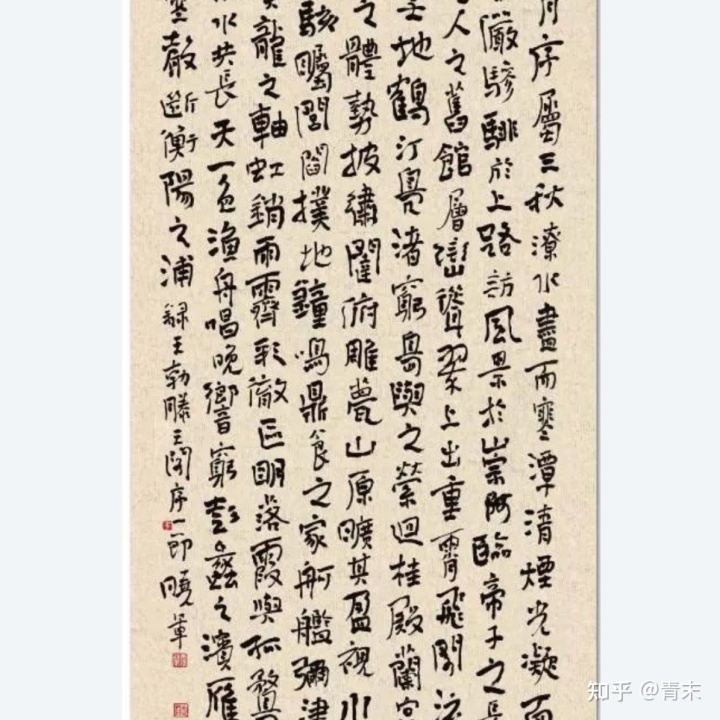 序屬三秋潦水盡而寒潭清煙光凝而
儼驂騑於上路訪風景於崇阿臨帝子之長
人之舊館層巒聳翠上出重霄飛閣流
地鶴汀鳧渚窮島嶼之縈迴桂殿蘭宮
之體勢披繡闥俯雕甍山原曠其盈視川
駭矚閭閻撲地鐘鳴鼎食之家舸艦彌津
龍之軸虹銷雨霽彩徹區明落霞與孤鶩
水共長天一色漁舟唱晚響窮彭蠡之濱雁
聲斷衡陽之浦 録王勃滕王閣序一節 曉軍
知乎 @青末